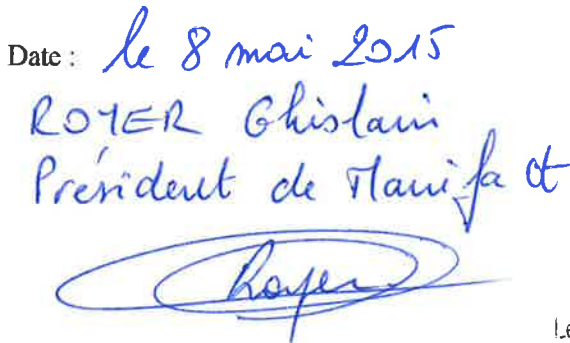 Date : le 8 mai 2015
ROYER Ghislain
Président de Manifact
Royer
Le